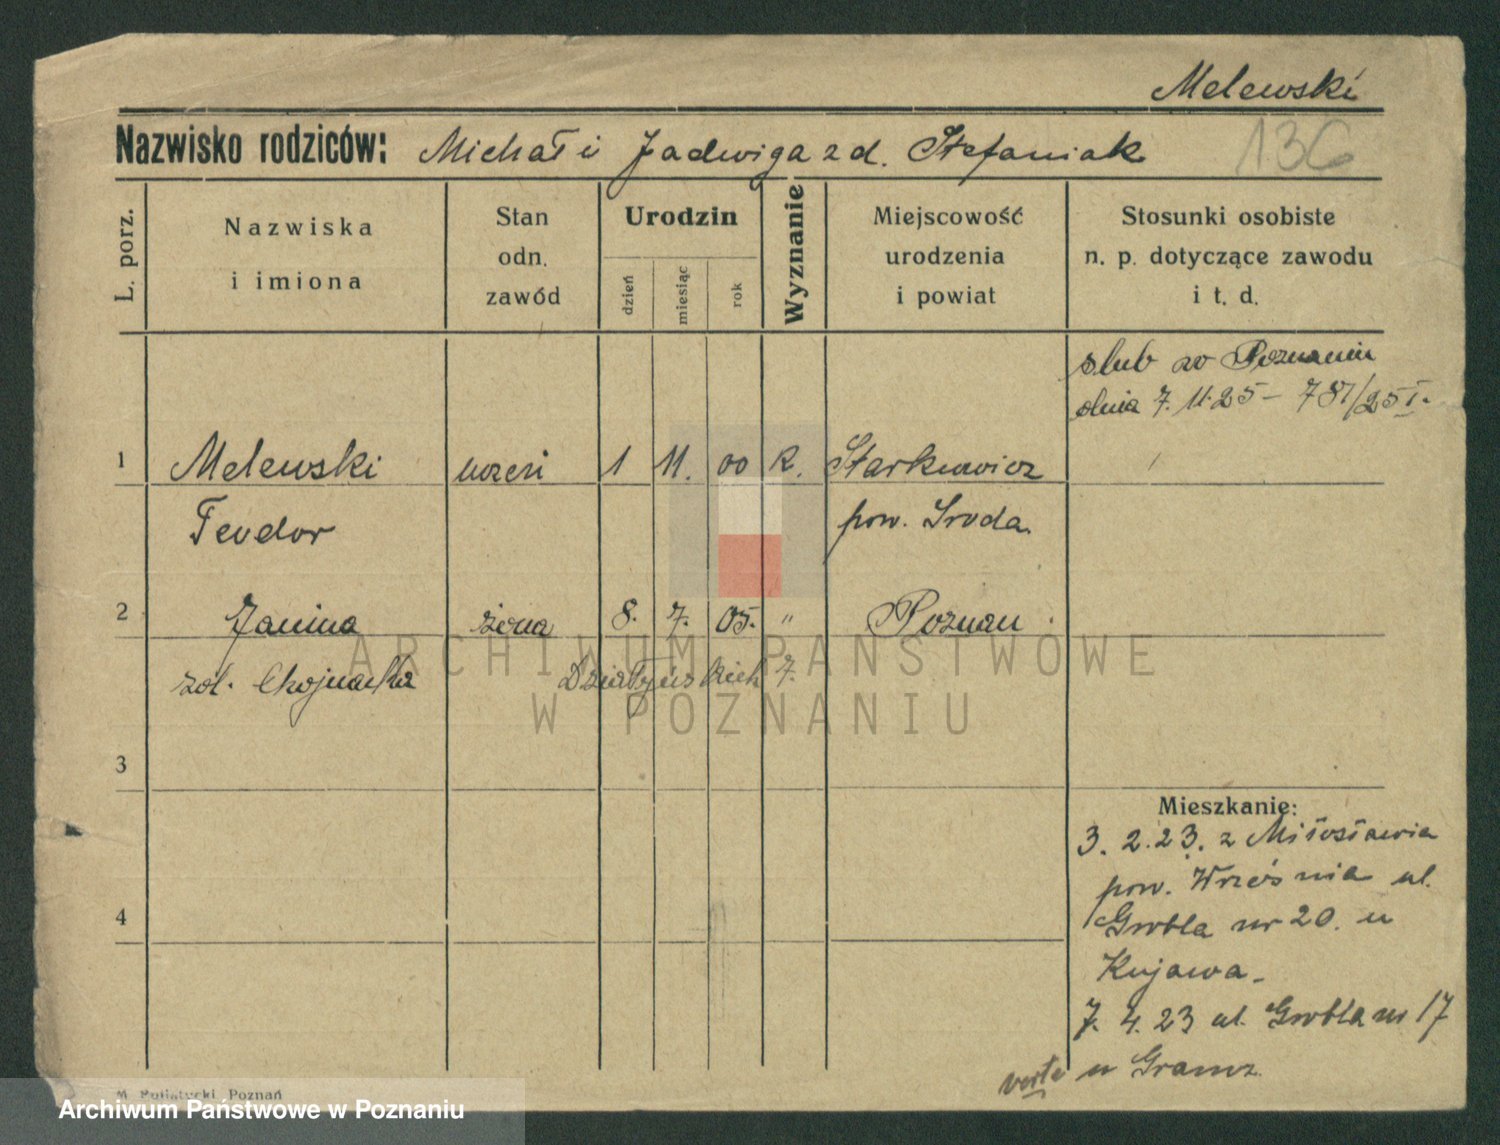 Melewski
Nazwisko rodziców: Michał i Jadwiga z d. Stefaniak
136
L. porz.
Nazwiska
i imiona
Stan
odn.
zawód
Urodzin
dzień
miesiąc
rok
Wyznanie
Miejscowość
urodzenia
i powiat
Stosunki osobiste
n. p. dotyczące zawodu
i t. d.
slub w Poznaniu
dnia 7.11.25 – 781/25 I.
1 Melewski uczeń 1 11. 00 R. Starkowicz
Feodor pow. Sroda
2 Janina żona 8. 7. 05. " Poznan
zd. Chojnacka Działyńskich 7.
3
Mieszkanie:
3. 2. 23. z Miłosławia
pow. Września ul.
4
Grobla nr 20. u
Kujawa.
7. 4. 23 ul. Grobla nr 17
verte u Gramz
M. Poliatycki, Poznań
ARCHIWUM PAŃSTWOWE
W POZNANIU
Archiwum Państwowe w Poznaniu